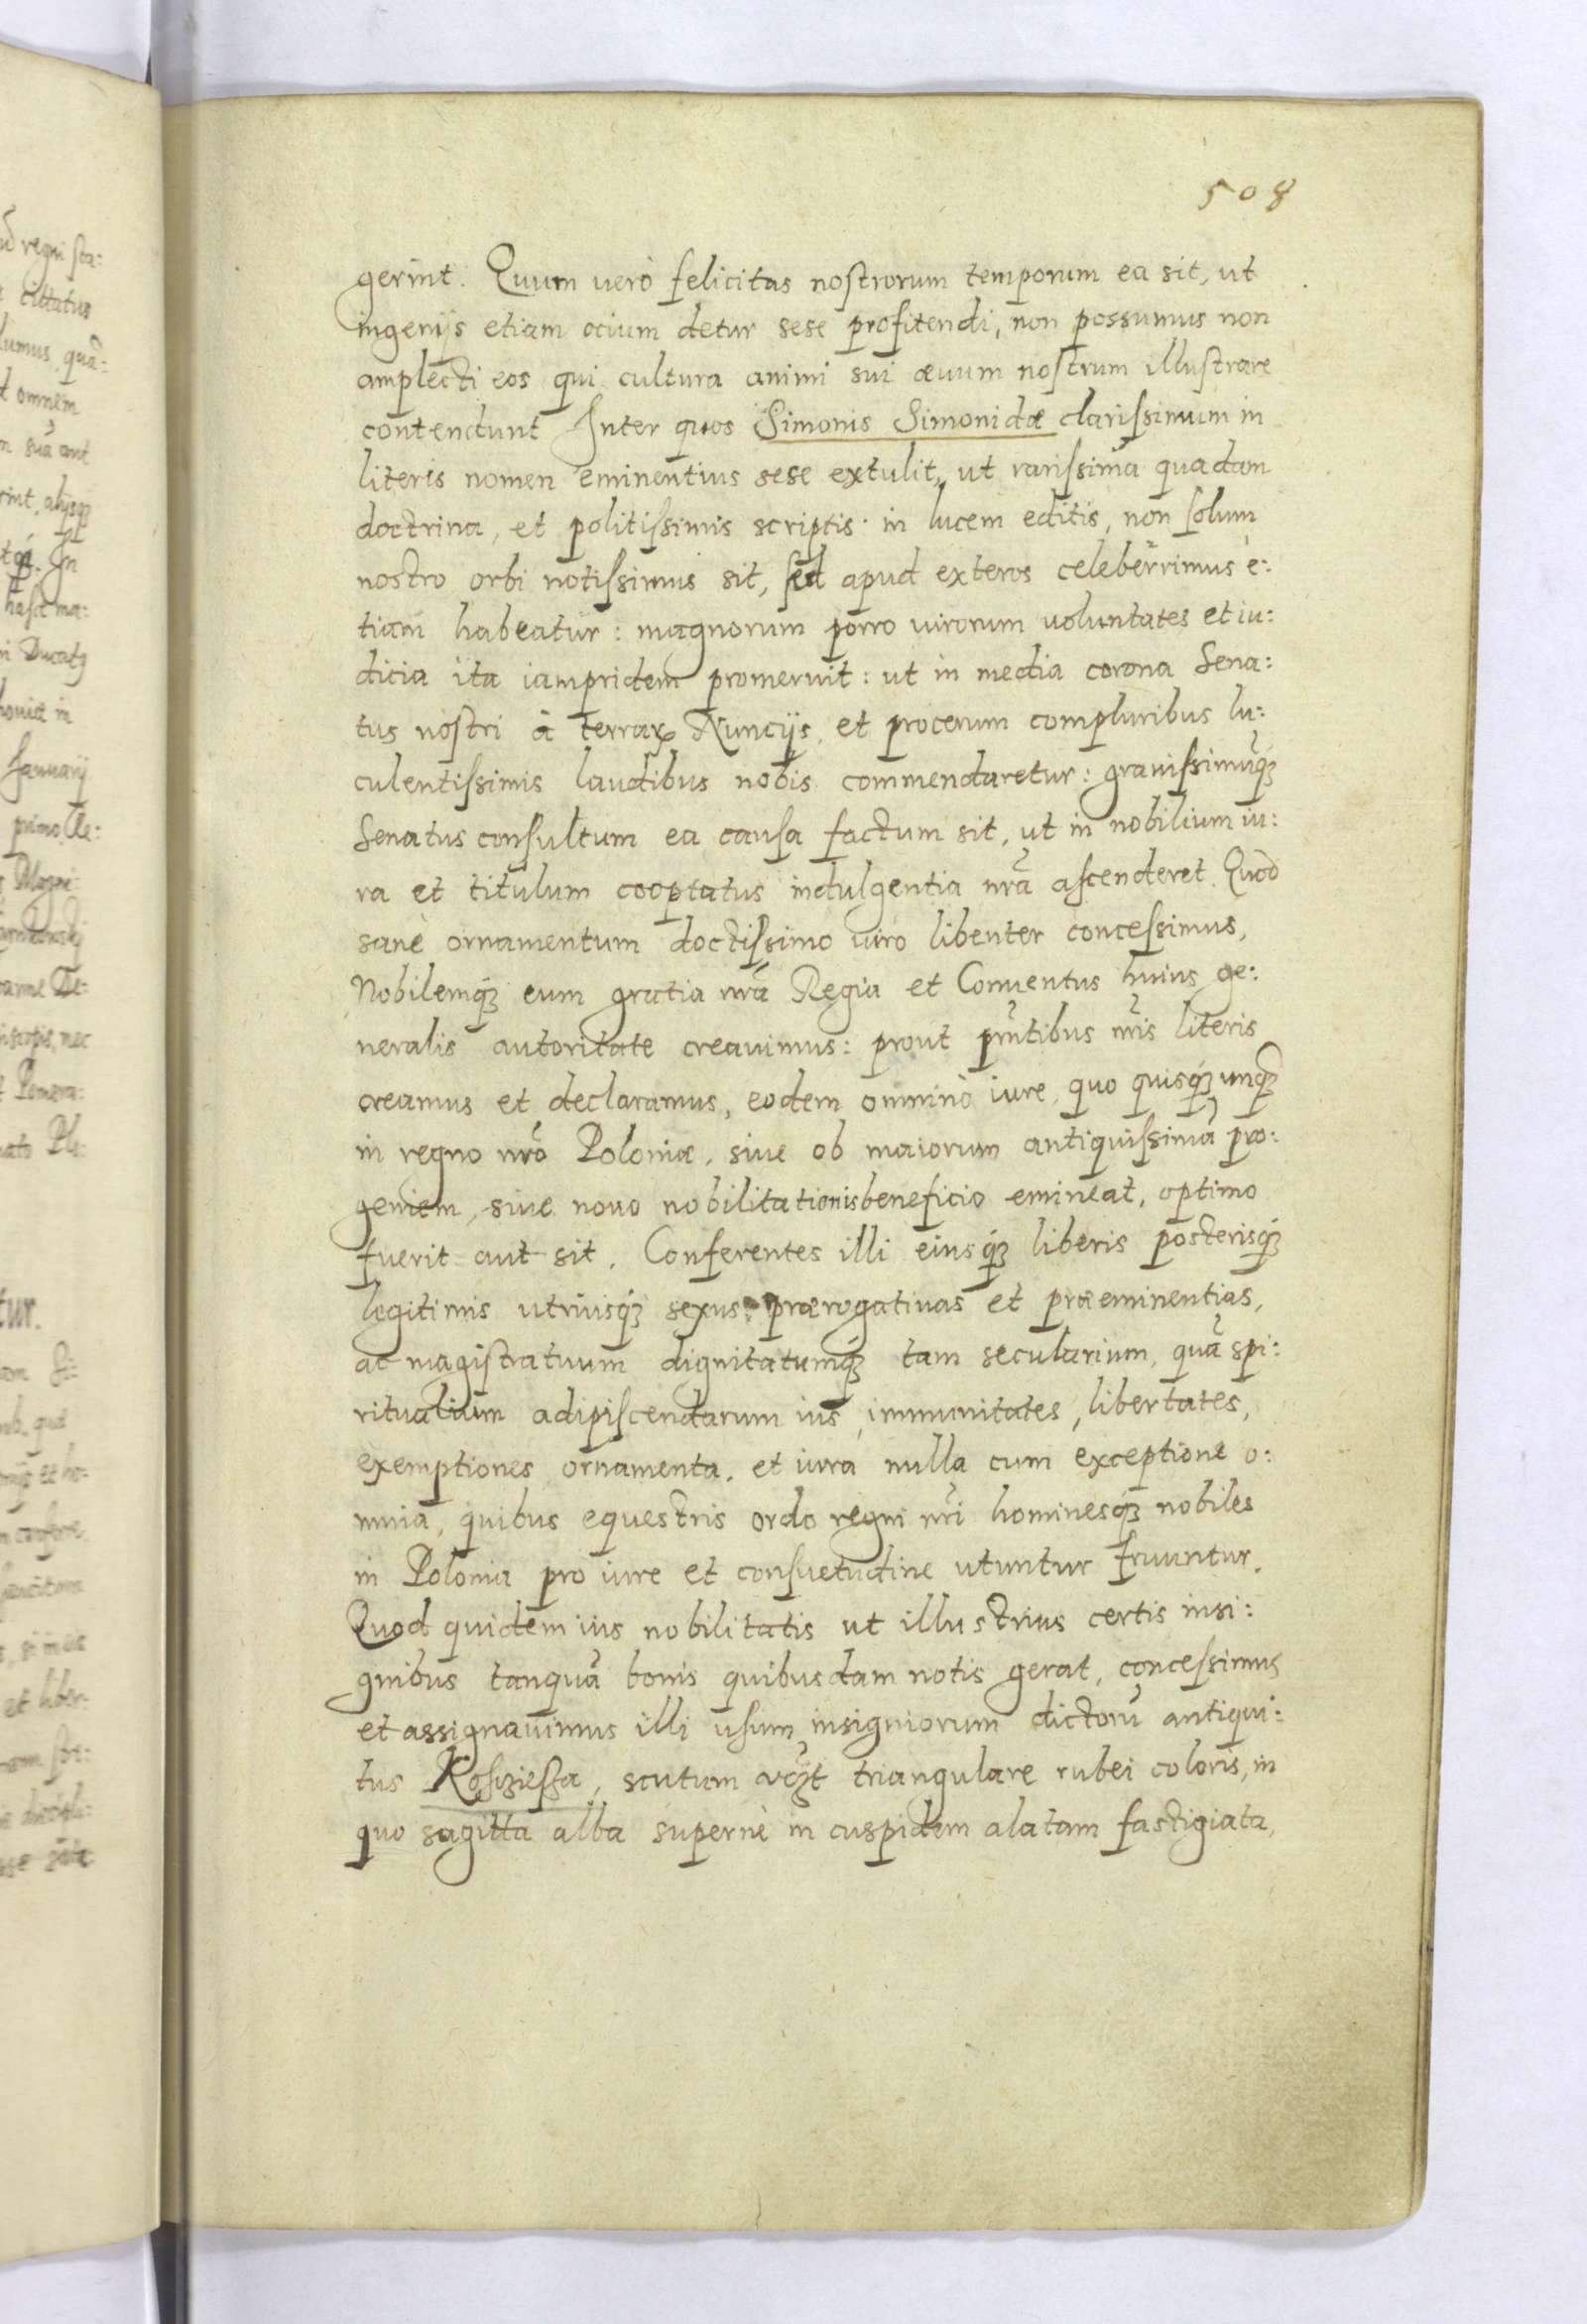 508
gerint. Quum verò felicitas nostrorum temporum ea sit, ut
ingenijs etiam ocium detur sese profitendi, non possumus non
amplecti eos qui cultura animi sui æuum nostrum illustrare
contendunt Inter quos Simonis Simonidæ clarissimum in
literis nomen eminentius sese extulit, ut rarissima quadam
doctrina, et politissimis scriptis in lucem editis, non solum
nostro orbi notissimus sit, sed apud exteros celeberrimus e:
tiam habeatur: magnorum porro uirorum voluntates et iu:
dicia ita iampridem promeruit: ut in media corona Sena:
tus nostri à terraꝝ Nuncijs, et procerum compluribus lu:
culentissimis laudibus nobis commendaretur: grauissimũqꝫ
Senatus consultum ea causa factum sit, ut in nobilium iu:
ra et titulum cooptatus indulgentia nr̃a ascenderet. Quod
sanè ornamentum doctissimo uiro libenter concessimus,
Nobilemqꝫ eum gratia nr̃a Regia et Conuentus huius ge:
neralis autoritate creauimus: prout pñtibus nr̃is literis
creamus et declaramus, eodem omninò iure, quo quisqꝫ unqꝫ
in regno nr̃o Poloniæ, siue ob maiorum antiquissimã pro:
geniem, siue nouo nobilitationis beneficio emineat, optimo
fuerit aut sit. Conferentes illi eiusqꝫ liberis posterisqꝫ
legitimis utriusqꝫ sexus: prærogatiuas et præeminentias,
ac magistratuum dignitatumqꝫ tam secularium, quã spi:
ritualium adipiscendarum ius, immunitates, libertates,
exemptiones, ornamenta, et iura nulla cum exceptione o:
mnia, quibus equestris ordo regni nr̃i hominesqꝫ nobiles
in Polonia pro iure et consuetudine utuntur fruuntur.
Quod quidem ius nobilitatis ut illustrius certis insi:
gnibus tanquã bonis quibusdam notis gerat, concessimus
et assignauimus illi usum insigniorum dictorũ antiqui:
tus Kosziessa, scutum vꝫt triangulare rubei coloris, in
quo sagitta alba supernè in cuspidem alatam fastigiata,